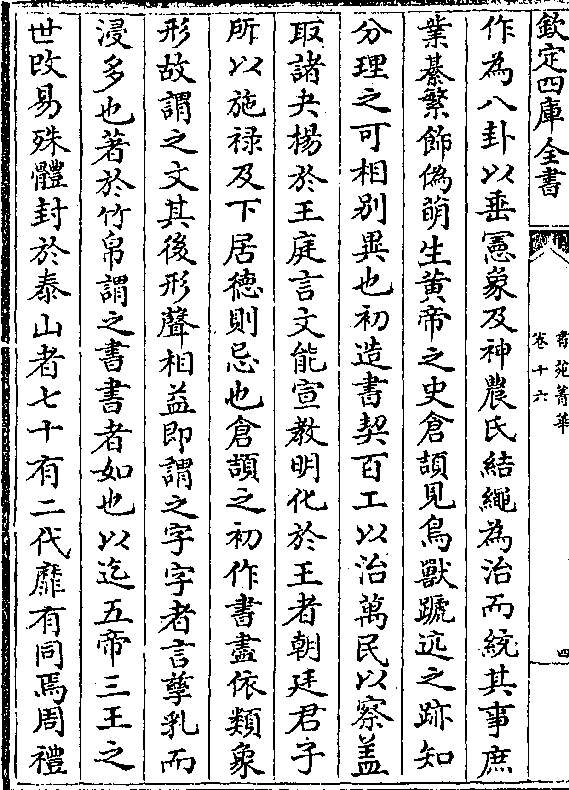 欽定四庫全書
書苑菁華
卷十六
四
作為八卦以垂憲象及神農氏結繩為治而統其事庶
業綦繁飾偽萌生黄帝之史倉頡見鳥獸蹏迒之跡知
分理之可相别異也初造書契百工以治萬民以察盖
取諸夬楊於王庭言文能宣教明化於王者朝廷君子
所以施禄及下居德則忌也倉頡之初作書盡依類象
形故謂之文其後形聲相益即謂之字字者言孳乳而
浸多也著於竹帛謂之書書者如也以迄五帝三王之
世改易殊體封於泰山者七十有二代靡有同焉周禮